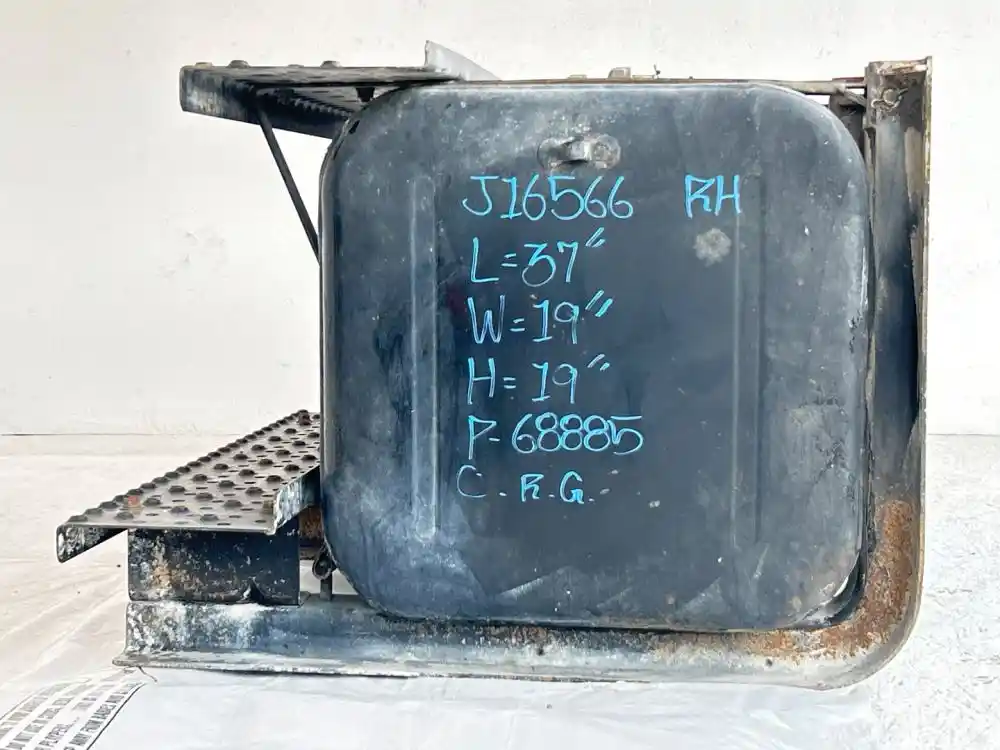 J16566 RH
L=37"
W=19"
H=19"
P-68885
C.R.G.